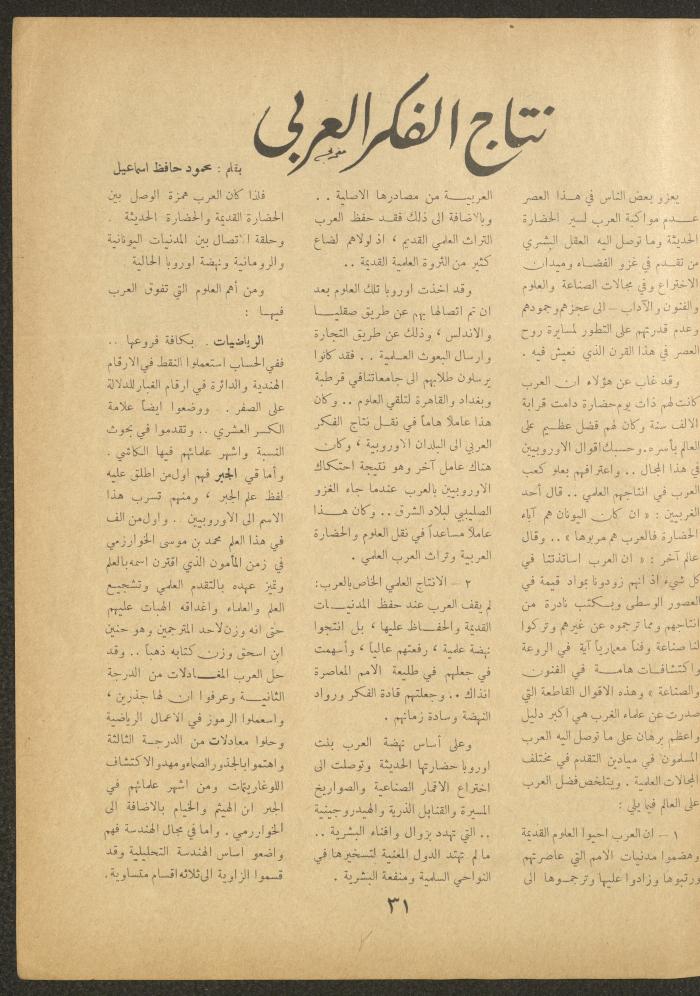 نتاج الفكر العربي
بقلم : محمود حافظ اسماعيل
يعزو بعض الناس في هـذا العصر
عـدم مواكبة العرب لسير الحضارة
الحديثة وما توصل اليه العقل البشري
من تقـدم في غزو الفضـاء وميدان
الاختراع وفي مجالات الصناعة والعلوم
والفنون والآداب – الى عجزهم وجمودهم
وعدم قدرتهم على التطور لمسايرة روح
العصر في هذا القرن الذي نعيش فيه .
وقد غاب عن هؤلاء ان العرب
كانت لهم ذات يوم حضارة دامت قرابة
الالف سنة وكان لهم فضل عظـيم على
العالم بأسره. وحسبك اقوال الاوروبيين
في هذا المجال .. واعترافهم بعلو كعب
العرب في انتاجهم العلمي .. قال أحد
الغربيين : « ان كان اليونان هم آباء
الحضارة فالعرب هم مربوها » .. وقال
عالم آخر : « ان العرب اساتذتنا في
كل شيء اذ انهم زودونا بمواد قيمة في
العصور الوسطى وبـكتب نادرة من
انتاجهم ومما ترجموه عن غيرهم وتركوا
لنا صناعة وفناً معمارياً آية في الروعة
واكتشافـات هامـة في الفنون
والصناعة » وهذه الاقوال القاطعة التي
صدرت عن علماء الغرب هي اكبر دليل
واعظم برهان على ما توصل اليه العرب
المسلمون في ميادين التقدم في مختلف
المجالات العلمية . ويتلخص فضل العرب
على العالم فيما يلي :
١ – ان العرب احيوا العلوم القديمة
وهضموا مدنيات الامم التي عاصرتهم
ورتبوها وزادوا عليها وترجمـوها الى
العربيـة من مصادرها الاصلية . .
وبالاضافة الى ذلك فقـد حفظ العرب
التراث العلمي القديم ، اذ لولاهم لضاع
كثير من الثروة العلمية القديمة ..
وقد اخذت اوروبا تلك العلوم بعد
ان تم اتصالها بهم عن طريق صقليـا
والاندلس ، وذلك عن طريق التجارة
وارسال البعوث العـلمية . . فقد كانوا
يرسلون طلابهم الى جامعاتنا في قرطبة
وبغداد والقاهرة لتلقي العلوم .. وكان
هذا عاملاً هاماً في نقـل نتاج الفكر
العربي الى البلدان الاوروبية ، وكان
هناك عامل آخر وهو نتيجة احتكاك
الاوروبيين بالعرب عندما جاء الغزو
الصليبي لبلاد الشرق .. وكان هـذا
عاملاً مساعداً في نقل العلوم والحضارة
العربية وتراث العرب العلمي .
٢ – الانتاج العلمي الخاص بالعرب:
لم يقف العرب عند حفظ المدنيـات
القديمة والحفـاظ عليها ، بل انتجوا
نهضة علمية ، رفعتهم عالياً ، وأسهمت
في جعلهم في طليعة الامم المعاصرة
انذاك .. وجعلتهم قادة الفكر ورواد
النهضة وسادة زمانهم .
وعلى أساس نهضة العرب بنت
اوروبا حضارتها الحديثة وتوصلت الى
اختراع الاقمار الصناعية والصواريخ
المسيرة والقنابل الذرية والهيدروجينية
.. التي تهدد بزوال وافناء البشرية ..
ما لم تهتد الدول المعنية لتسخيرها في
النواحي السلمية ومنفعة البشرية .
فاذا كان العرب همزة الوصل بين
الحضارة القديمة والحضارة الحديثة .
وحلقة الاتصال بين المدنيات اليونانية
والرومانية ونهضة اوروبا الحالية
ومن أهم العلوم التي تفوق العرب
فيهـا :
الرياضيات . بكافة فروعها ..
ففي الحساب استعملوا النقط في الارقام
الهندية والدائرة في ارقام الغبار للدلالة
على الصفر . ووضعوا ايضاً علامة
الكسر العشري .. وتقدموا في بحوث
النسبة واشهر علمائهم فيها الكاشي .
وأما في الجبر فهم اول من اطلق عليه
لفظ علم الجبر ، ومنهم تسرب هذا
الاسم الى الاوروبيين . واول من الف
في هذا العلم محمد بن موسى الخوارزمي
في زمن المأمون الذي اقترن اسمه بالعلم
وتميز عهده بالتقدم العلمي وتشجيـع
العلم والعلماء واغداقه الهبات عليهم
حتى انه وزن لاحد المترجمين وهو حنين
ابن اسحق وزن كتابه ذهباً .. وقد
حل العرب المعـادلات من الدرجة
الثانيـة وعرفوا ان لها جذرين ،
واسعملوا الرموز في الاعمال الرياضية
وحلوا معادلات من الدرجـة الثالثة
واهتموا بالجذور الصماء ومهدو الاكتشاف
اللوغاريتمات ومن اشهر علمائهم في
الجبر ابن الهيثم والخيام بالاضافة الى
الخوارزمي . واما في مجال الهندسة فهم
واضعو اساس الهندسة التحليلية وقد
قسموا الزاوية الى ثلاثه اقسام متساوية.
٣١